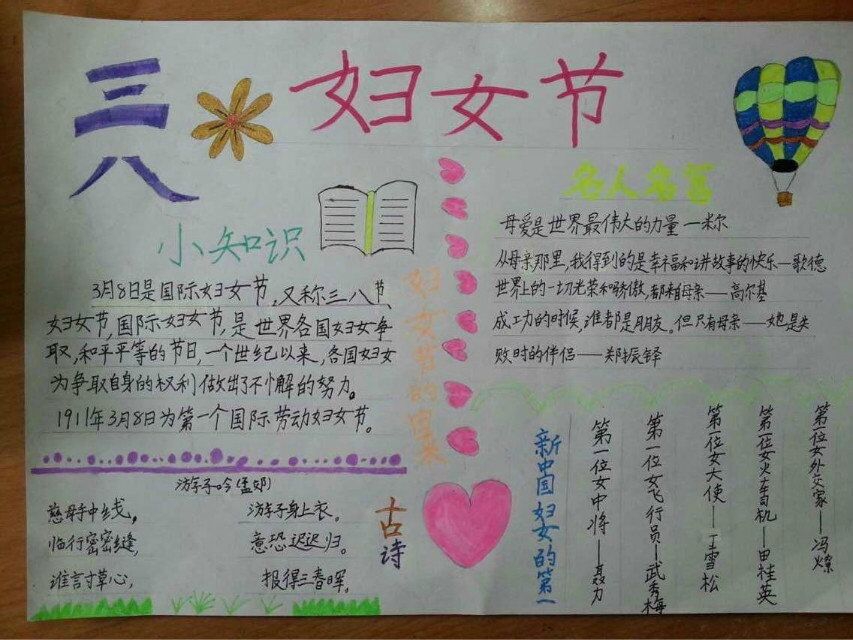 三八
妇女节
小知识
3月8日是国际妇女节,又称三八节、
妇女节,国际妇女节,是世界各国妇女争
取,和平平等的节日,一个世纪以来,各国妇女
为争取自身的权利做出了不懈的努力。
1911年3月8日为第一个国际劳动妇女节。
妇女节的由来
名人名言
母爱是世界最伟大的力量一米尔
从母亲那里,我得到的是幸福和讲故事的快乐—歌德
世界上的一切光荣和骄傲,都来自母亲——高尔基
成功的时候,谁都是朋友。但只有母亲——她是失
败时的伴侣——郑振铎
游子吟(孟郊)
慈母手中线,
游子身上衣。
临行密密缝,
意恐迟迟归。
谁言寸草心,
报得三春晖。
古诗
新中国妇女的第一
第一位女中将——聂力
第一位女飞行员—武秀梅
第一位女大使——丁雪松
第一位女火车司机—田桂英
第一位女外交家——冯燎